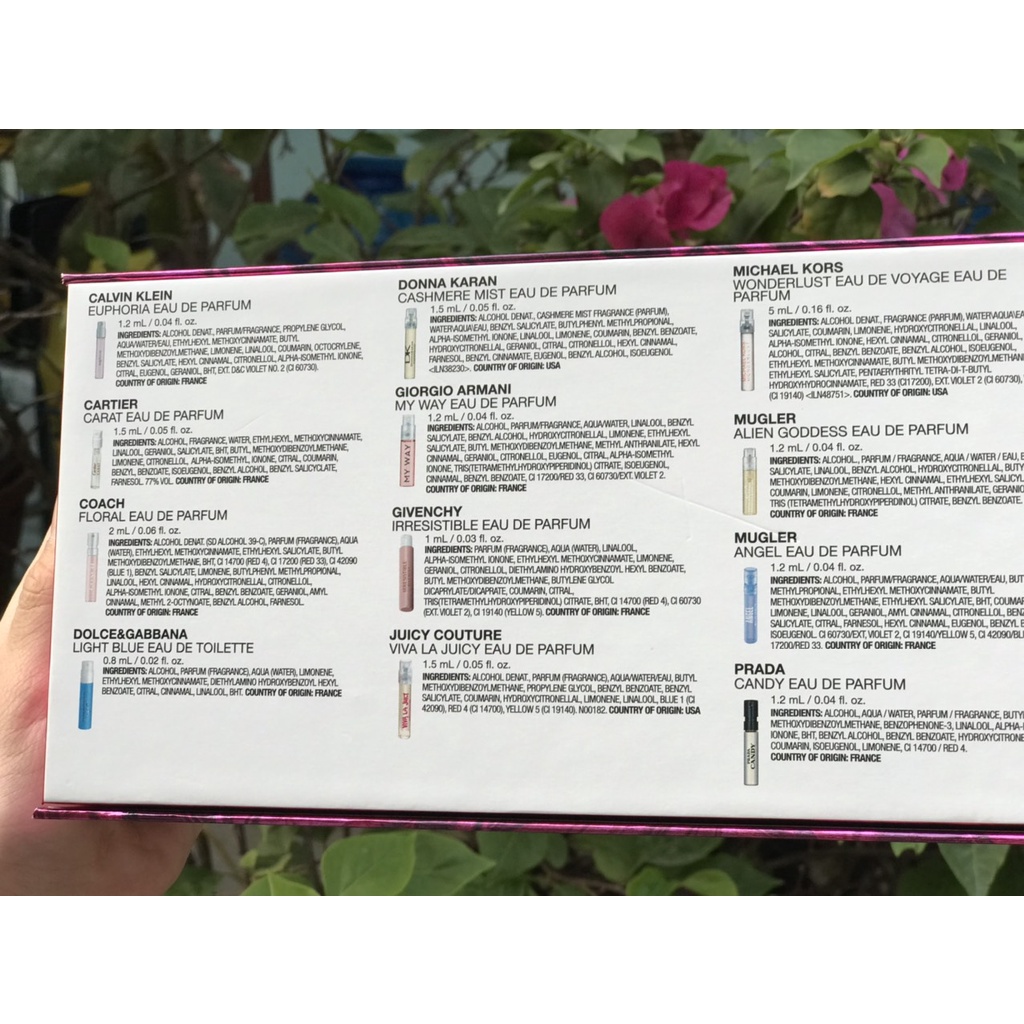 CALVIN KLEIN
EUPHORIA EAU DE PARFUM
1.2 mL / 0.04 fl. oz.
INGREDIENTS: ALCOHOL DENAT., PARFUM/FRAGRANCE, PROPYLENE GLYCOL,
AQUA/WATER/EAU, ETHYLHEXYL METHOXYCINNAMATE, BUTYL
METHOXYDIBENZOYLMETHANE, LIMONENE, LINALOOL, COUMARIN, OCTOCRYLENE,
BENZYL SALICYLATE, HEXYL CINNAMAL, CITRONELLOL, ALPHA-ISOMETHYL IONONE,
CITRAL, EUGENOL, GERANIOL, BHT, EXT. D&C VIOLET NO. 2 (CI 60730).
COUNTRY OF ORIGIN: FRANCE
CARTIER
CARAT EAU DE PARFUM
1.5 mL / 0.05 fl. oz.
INGREDIENTS: ALCOHOL, FRAGRANCE, WATER, ETHYLHEXYL, METHOXYCINNAMATE,
LINALOOL, GERANIOL, SALICYLATE, BHT, BUTYL, METHOXYDIBENZOYLMETHANE,
LIMONENE, CITRONELLOL, ALPHA-ISOMETHYL, IONONE, CITRAL, COUMARIN,
BENZYL, BENZOATE, ISOEUGENOL, BENZYL ALCOHOL, BENZYL SALICYCLATE,
FARNESOL. 77% VOL. COUNTRY OF ORIGIN: FRANCE
COACH
FLORAL EAU DE PARFUM
2 mL / 0.06 fl. oz.
INGREDIENTS: ALCOHOL DENAT. (SD ALCOHOL 39-C), PARFUM (FRAGRANCE), AQUA
(WATER), ETHYLHEXYL METHOXYCINNAMATE, ETHYLHEXYL SALICYLATE, BUTYL
METHOXYDIBENZOYLMETHANE, BHT, CI 14700 (RED 4), CI 17200 (RED 33), CI 42090
(BLUE 1), BENZYL SALICYLATE, LIMONENE, BUTYLPHENYL METHYLPROPIONAL,
LINALOOL, HEXYL CINNAMAL, HYDROXYCITRONELLAL, CITRONELLOL,
ALPHA-ISOMETHYL IONONE, CITRAL, BENZYL BENZOATE, GERANIOL, AMYL
CINNAMAL, METHYL 2-OCTYNOATE, BENZYL ALCOHOL, FARNESOL.
COUNTRY OF ORIGIN: FRANCE
DOLCE&GABBANA
LIGHT BLUE EAU DE TOILETTE
0.8 mL / 0.02 fl. oz.
INGREDIENTS: ALCOHOL, PARFUM (FRAGRANCE), AQUA (WATER), LIMONENE,
ETHYLHEXYL METHOXYCINNAMATE, DIETHYLAMINO HYDROXYBENZOYL HEXYL
BENZOATE, CITRAL, CINNAMAL, LINALOOL, BHT. COUNTRY OF ORIGIN: FRANCE
DONNA KARAN
CASHMERE MIST EAU DE PARFUM
1.5 mL / 0.05 fl. oz.
INGREDIENTS: ALCOHOL DENAT., CASHMERE MIST FRAGRANCE (PARFUM),
WATER\AQUA\EAU, BENZYL SALICYLATE, BUTYLPHENYL METHYLPROPIONAL,
ALPHA-ISOMETHYL IONONE, LINALOOL, LIMONENE, COUMARIN, BENZYL BENZOATE,
HYDROXYCITRONELLAL, GERANIOL, CITRAL, CITRONELLOL, HEXYL CINNAMAL,
FARNESOL, BENZYL CINNAMATE, EUGENOL, BENZYL ALCOHOL, ISOEUGENOL
<ILN38230>. COUNTRY OF ORIGIN: USA
GIORGIO ARMANI
MY WAY EAU DE PARFUM
1.2 mL / 0.04 fl. oz.
MY WAY
INGREDIENTS: ALCOHOL, PARFUM/FRAGRANCE, AQUA/WATER, LINALOOL, BENZYL
SALICYLATE, BENZYL ALCOHOL, HYDROXYCITRONELLAL, LIMONENE, ETHYLHEXYL
SALICYLATE, BUTYL METHOXYDIBENZOYLMETHANE, METHYL ANTHRANILATE, HEXYL
CINNAMAL, GERANIOL, COUMARIN, CITRONELLOL, EUGENOL, CITRAL, ALPHA-ISOMETHYL
IONONE, TRIS(TETRAMETHYLHYDROXYPIPERIDINOL) CITRATE, ISOEUGENOL,
CINNAMAL, BENZYL BENZOATE, CI 17200/RED 33, CI 60730/EXT. VIOLET 2.
COUNTRY OF ORIGIN: FRANCE
GIVENCHY
IRRESISTIBLE EAU DE PARFUM
1 mL / 0.03 fl. oz.
INGREDIENTS: PARFUM (FRAGRANCE), AQUA (WATER), LINALOOL,
ALPHA-ISOMETHYL IONONE, ETHYLHEXYL METHOXYCINNAMATE, LIMONENE,
GERANIOL, CITRONELLOL, DIETHYLAMINO HYDROXYBENZOYL HEXYL BENZOATE,
BUTYL METHOXYDIBENZOYLMETHANE, BUTYLENE GLYCOL
DICAPRYLATE/DICAPRATE, COUMARIN, CITRAL,
TRIS(TETRAMETHYLHYDROXYPIPERIDINOL) CITRATE, BHT, CI 14700 (RED 4), CI 60730
(EXT. VIOLET 2), CI 19140 (YELLOW 5). COUNTRY OF ORIGIN: FRANCE
JUICY COUTURE
VIVA LA JUICY EAU DE PARFUM
1.5 mL / 0.05 fl. oz.
VIVA LA JUICY
INGREDIENTS: ALCOHOL DENAT., PARFUM (FRAGRANCE), AQUA/WATER/EAU, BUTYL
METHOXYDIBENZOYLMETHANE, PROPYLENE GLYCOL, BENZYL BENZOATE, BENZYL
SALICYLATE, COUMARIN, HYDROXYCITRONELLAL, LIMONENE, LINALOOL, BLUE 1 (CI
42090), RED 4 (CI 14700), YELLOW 5 (CI 19140). N00182. COUNTRY OF ORIGIN: USA
MICHAEL KORS
WONDERLUST EAU DE VOYAGE EAU DE
PARFUM
5 mL / 0.16 fl. oz.
INGREDIENTS: ALCOHOL DENAT., FRAGRANCE (PARFUM), WATER\AQUA\EA
SALICYLATE, COUMARIN, LIMONENE, HYDROXYCITRONELLAL, LINALOOL,
ALPHA-ISOMETHYL IONONE, HEXYL CINNAMAL, CITRONELLOL, GERANIOL,
ALCOHOL, CITRAL, BENZYL BENZOATE, BENZYL CINNAMATE, ISOEUGENOL,
ETHYLHEXYL METHOXYCINNAMATE, BUTYL METHOXYDIBENZOYLMETHAN
ETHYLHEXYL SALICYLATE, PENTAERYTHRITYL TETRA-DI-T-BUTYL
HYDROXYHYDROCINNAMATE, RED 33 (CI17200), EXT. VIOLET 2 (CI 60730),
(CI 19140) <ILN48751>. COUNTRY OF ORIGIN: USA
MUGLER
ALIEN GODDESS EAU DE PARFUM
1.2 mL / 0.04 fl. oz.
INGREDIENTS: ALCOHOL, PARFUM / FRAGRANCE, AQUA / WATER / EAU, B
SALICYLATE, LINALOOL, BENZYL ALCOHOL, HYDROXYCITRONELLAL, BUTYL
METHOXYDIBENZOYLMETHANE, HEXYL CINNAMAL, ETHYLHEXYL SALICYL
COUMARIN, LIMONENE, CITRONELLOL, METHYL ANTHRANILATE, GERANIO
TRIS (TETRAMETHYLHYDROXYPIPERIDINOL) CITRATE, BENZYL BENZOATE.
COUNTRY OF ORIGIN: FRANCE
MUGLER
ANGEL EAU DE PARFUM
1.2 mL / 0.04 fl. oz.
ANGEL
INGREDIENTS: ALCOHOL, PARFUM/FRAGRANCE, AQUA/WATER/EAU, BUT
METHYLPROPIONAL, ETHYLHEXYL METHOXYCINNAMATE, BUTYL
METHOXYDIBENZOYLMETHANE, ETHYLHEXYL SALICYLATE, BHT, COUMAR
LINALOOL, GERANIOL, AMYL CINNAMAL, CITRONELLOL, BEN
SALICYLATE, CITRAL, FARNESOL, HEXYL CINNAMAL, EUGENOL, BENZYL B
ISOEUGENOL CI 60730/EXT, VIOLET 2, CI 19140/YELLOW 5, CI 42090/BL
17200/RED 33. COUNTRY OF ORIGIN: FRANCE
PRADA
CANDY EAU DE PARFUM
1.2 mL / 0.04 fl. oz.
PRADA
CANDY
INGREDIENTS: ALCOHOL, AQUA / WATER, PARFUM / FRAGRANCE, BUTY
METHOXYDIBENZOYLMETHANE, BENZOPHENONE-3, LINALOOL, ALPHA-I
IONONE, BHT, BENZYL ALCOHOL, BENZYL BENZOATE, HYDROXYCITRONE
COUMARIN, ISOEUGENOL, LIMONENE, CI 14700 / RED 4.
COUNTRY OF ORIGIN: FRANCE